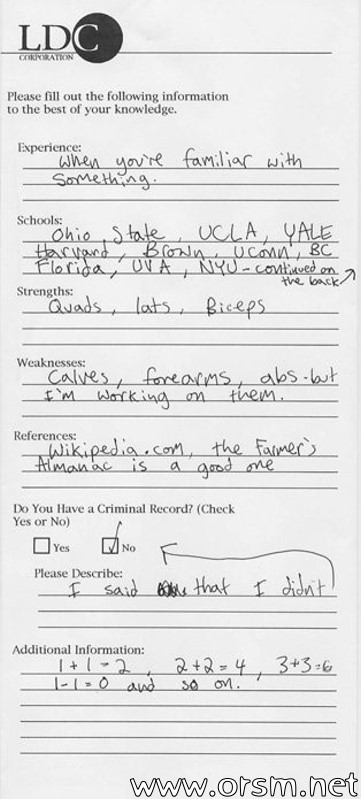 LDC
CORPORATION
Please fill out the following information
to the best of your knowledge.
Experience:
When you're familiar with
something.
Schools:
Ohio, State, UCLA, YALE
Harvard, Brown, UConn, BC
Florida, UVA, NYU - continued on
the back
Strengths:
Quads, lats, Biceps
Weaknesses:
Calves, forearms, abs - but
I'm working on them.
References:
Wikipedia.com, the Farmer's
Almanac is a good one
Do You Have a Criminal Record? (Check
Yes or No)
Yes No
Please Describe:
I said that I didn't
Additional Information:
1 + 1 = 2, 2 + 2 = 4, 3 + 3 = 6
1 - 1 = 0 and so on.
www.orsm.net